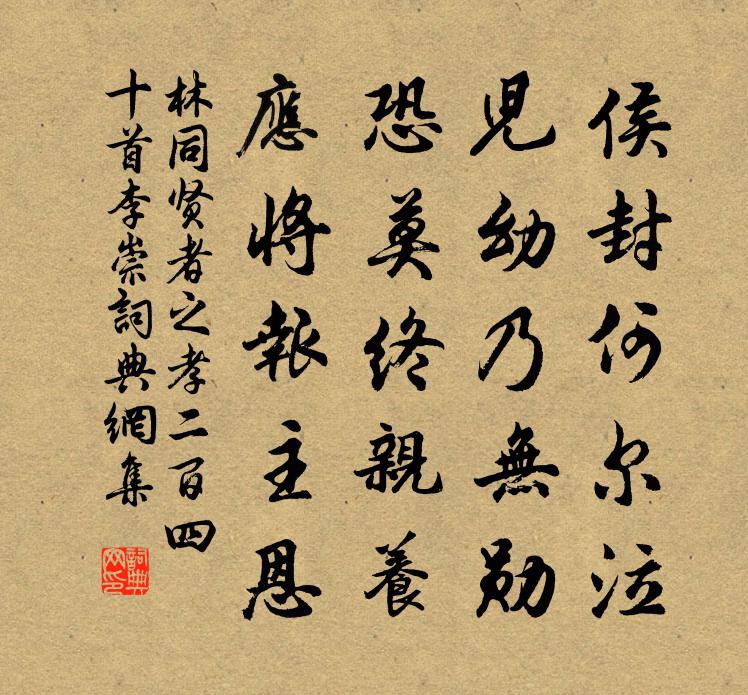 侯封何尔泣
児幼乃無勛
恐莫終親養
應將報主恩
林同贤者之孝二百四
十首李崇詞典網集
詞典网印